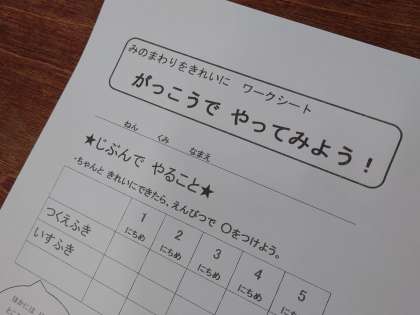 みのまわりをきれいに　ワークシート
がっこうで　やってみよう！
ねん　くみ　なまえ
★じぶんで　やること★
・ちゃんと きれいにできたら、えんぴつで ○をつけよう。
1にちめ　2にちめ　3にちめ　4にちめ　5にちめ
つくえふき
いすふき
ほかには